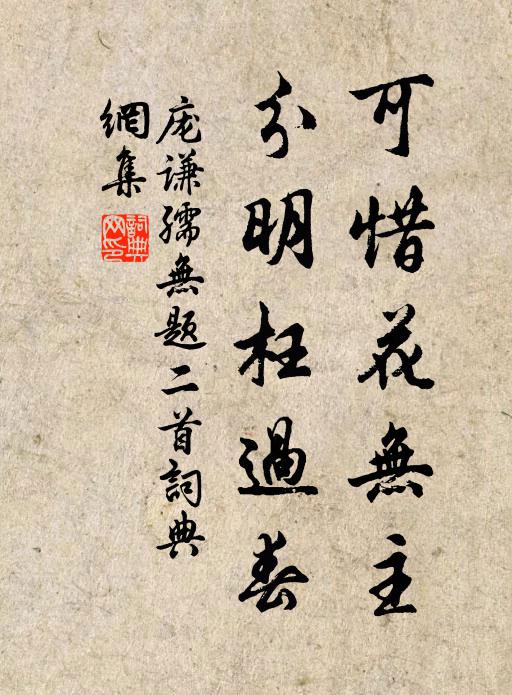 可惜花無主
分明枉過春
庞谦孺無题二首詞典
網集
詞典网印